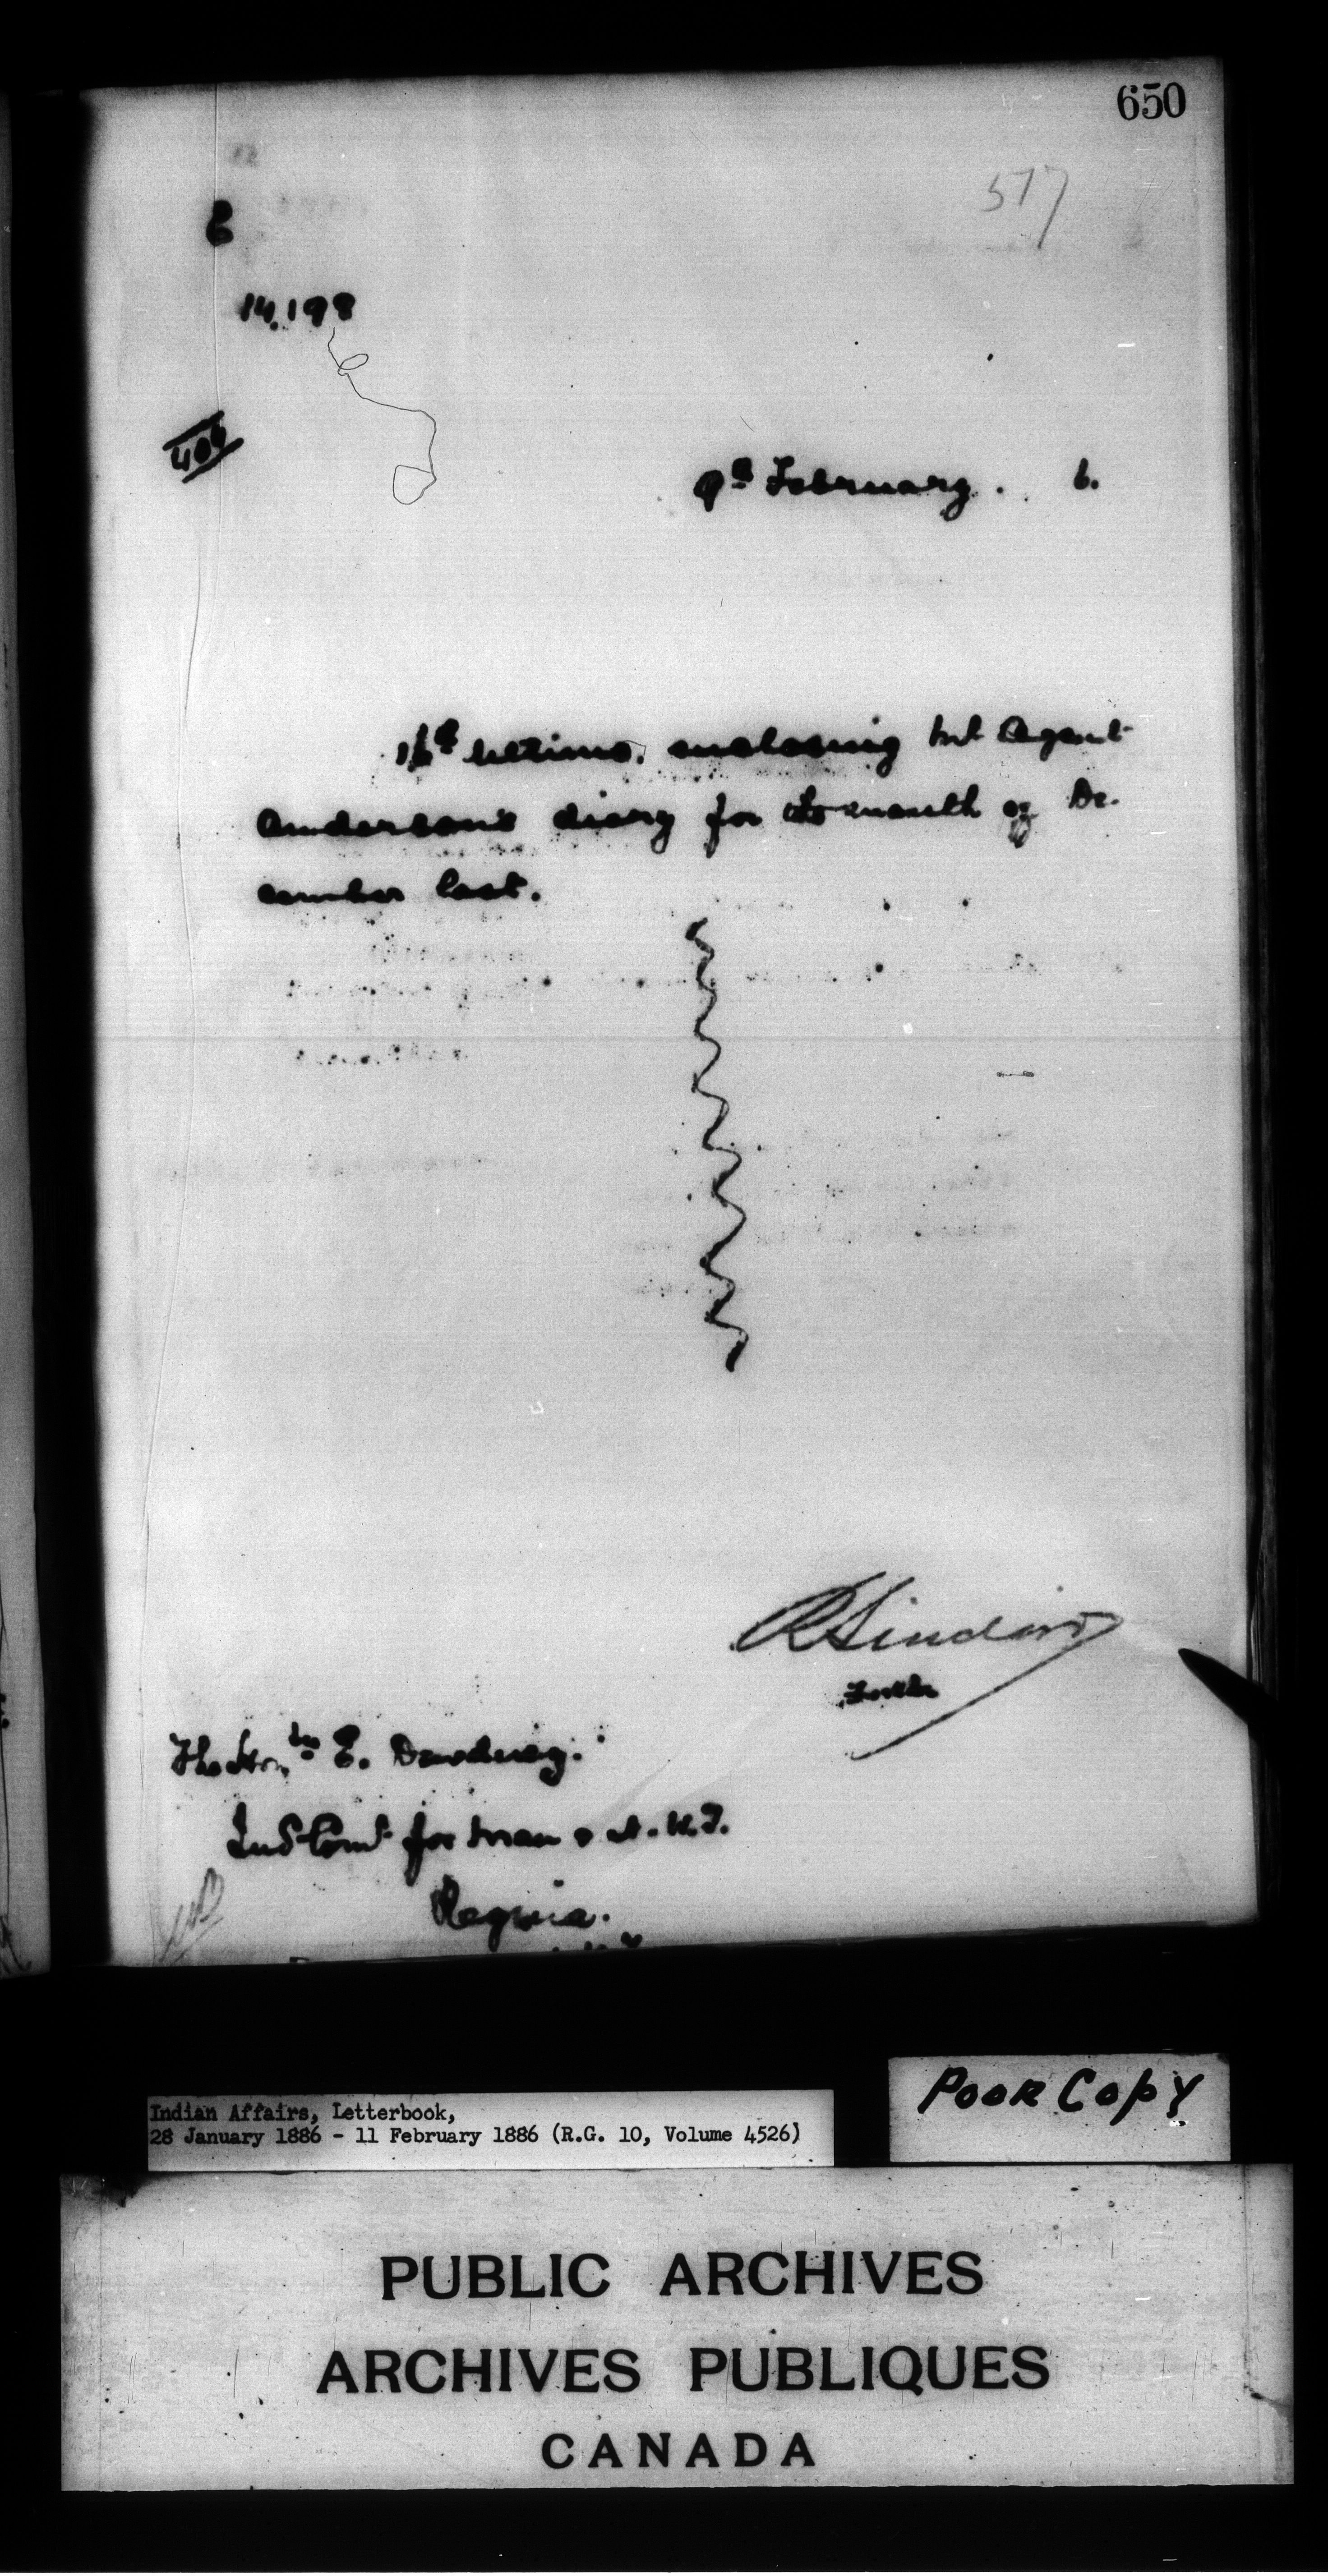 650
517
6
14,198
400
9th February. 6.
16th ultimo, enclosing Ind Agent
Anderson's diary for the month of De-
cember last.
R Sinclair
For the
The Honble E. Dewdney.
Ind Comr for Man & N.W.T.
Regina.
Poor Copy
Indian Affairs, Letterbook,
28 January 1886 - 11 February 1886 (R.G. 10, Volume 4526)
PUBLIC ARCHIVES
ARCHIVES PUBLIQUES
CANADA